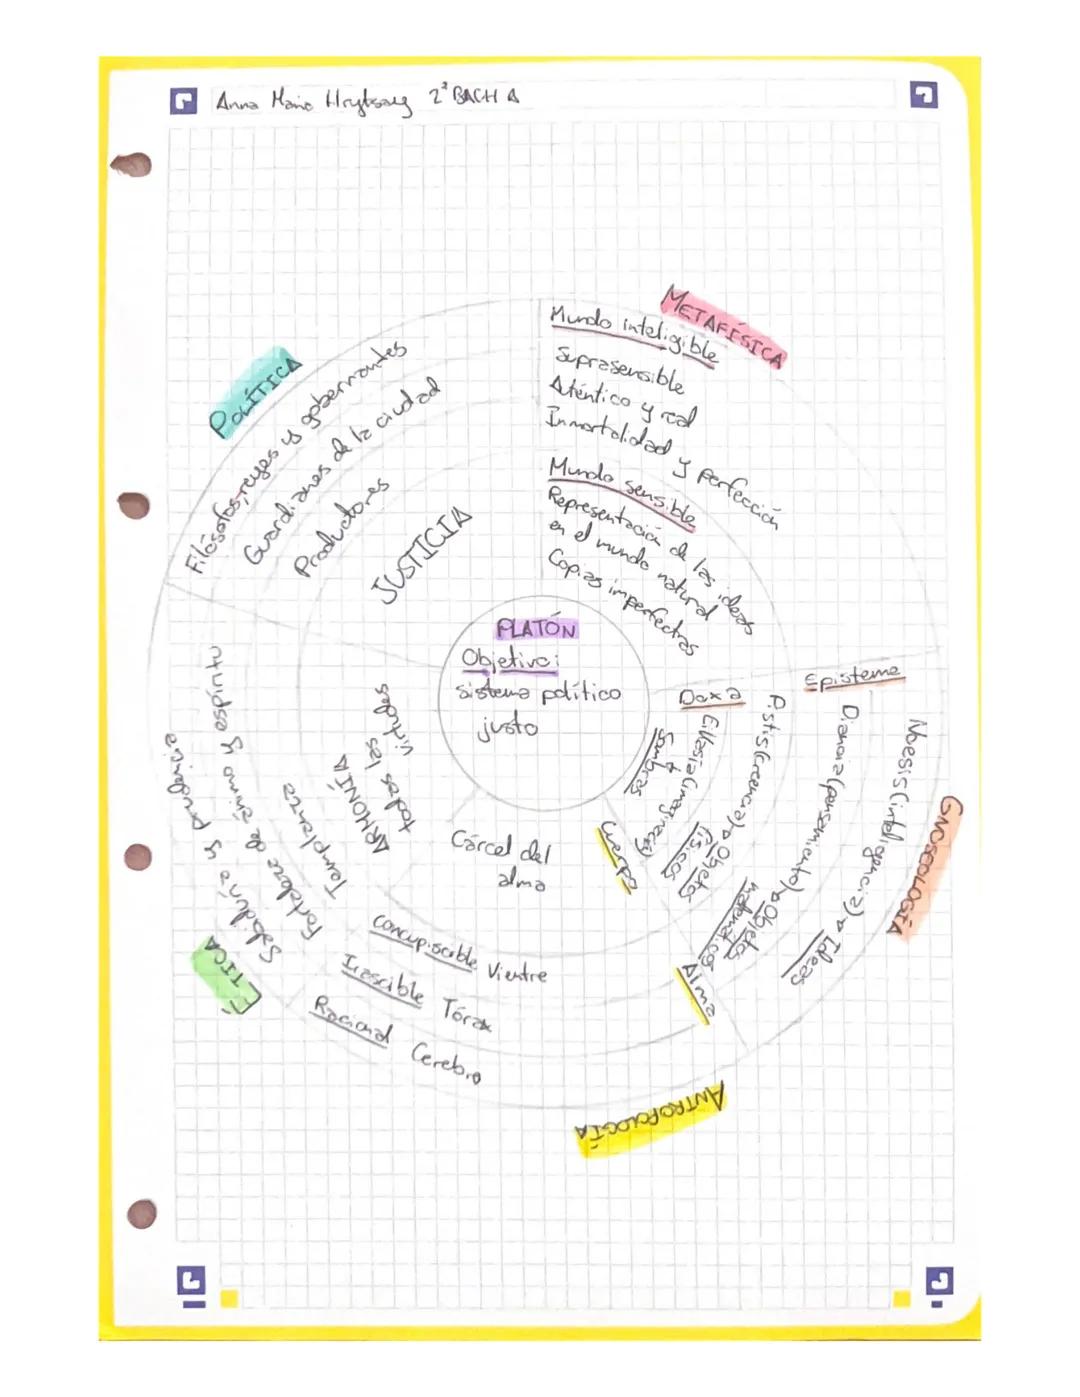 Anna Maria Hrytsay 2º BACH A
METAFÍSICA
Mundo inteligible
Suprasensible
Auténtico y real
Inmortalidad y perfección
Mundo sensible
Representación de las ideas
en el mundo natural
Copias imperfectas
POLÍTICA
Filósofos, reyes y gobernantes
Guardianes de la ciudad
Productores
JUSTICIA
PLATÓN
Objetivo:
sistema político
justo
GNOSEOLOGÍA
Doxa
Episteme
Eikasia (imaginación)
→ sombras
Pistis (creencia) → Objetos
físicos
Dianoia (pensamiento) → Objetos
matemáticos
Noesis (inteligencia) → Ideas
ANTROPOLOGÍA
Cuerpo
Cárcel del
alma
Alma
Concupiscible Vientre
Irascible Tórax
Racional Cerebro
ÉTICA
Sabiduría y prudencia
Fortaleza de ánimo y espíritu
Templanza
ARMONÍA
todas las
virtudes